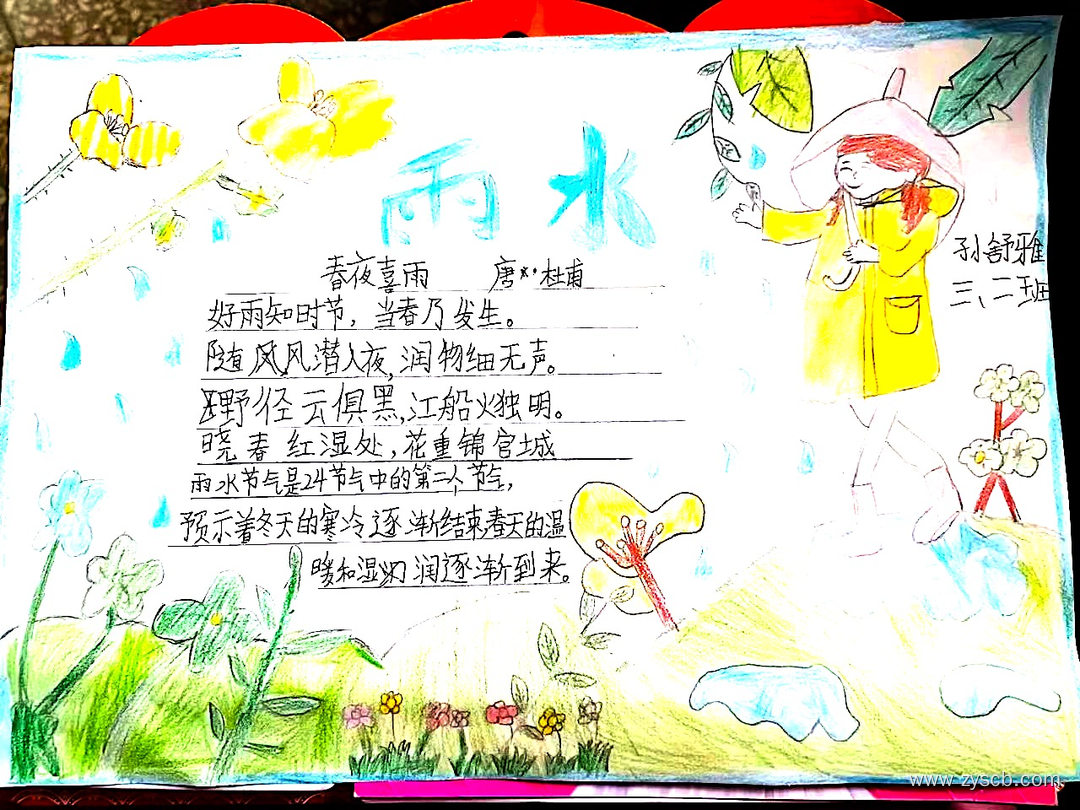 雨水
春夜喜雨 唐··杜甫
孙舒雅
三、二班
好雨知时节，当春乃发生。
随风风潜入夜,润物细无声。
野径云俱黑,江船火独明。
晓春红湿处,花重锦官城
雨水节气是24节气中的第二个节气,
预示着冬天的寒冷逐渐结束,春天的温
暖和湿润逐渐到来。
www.zyscb.com